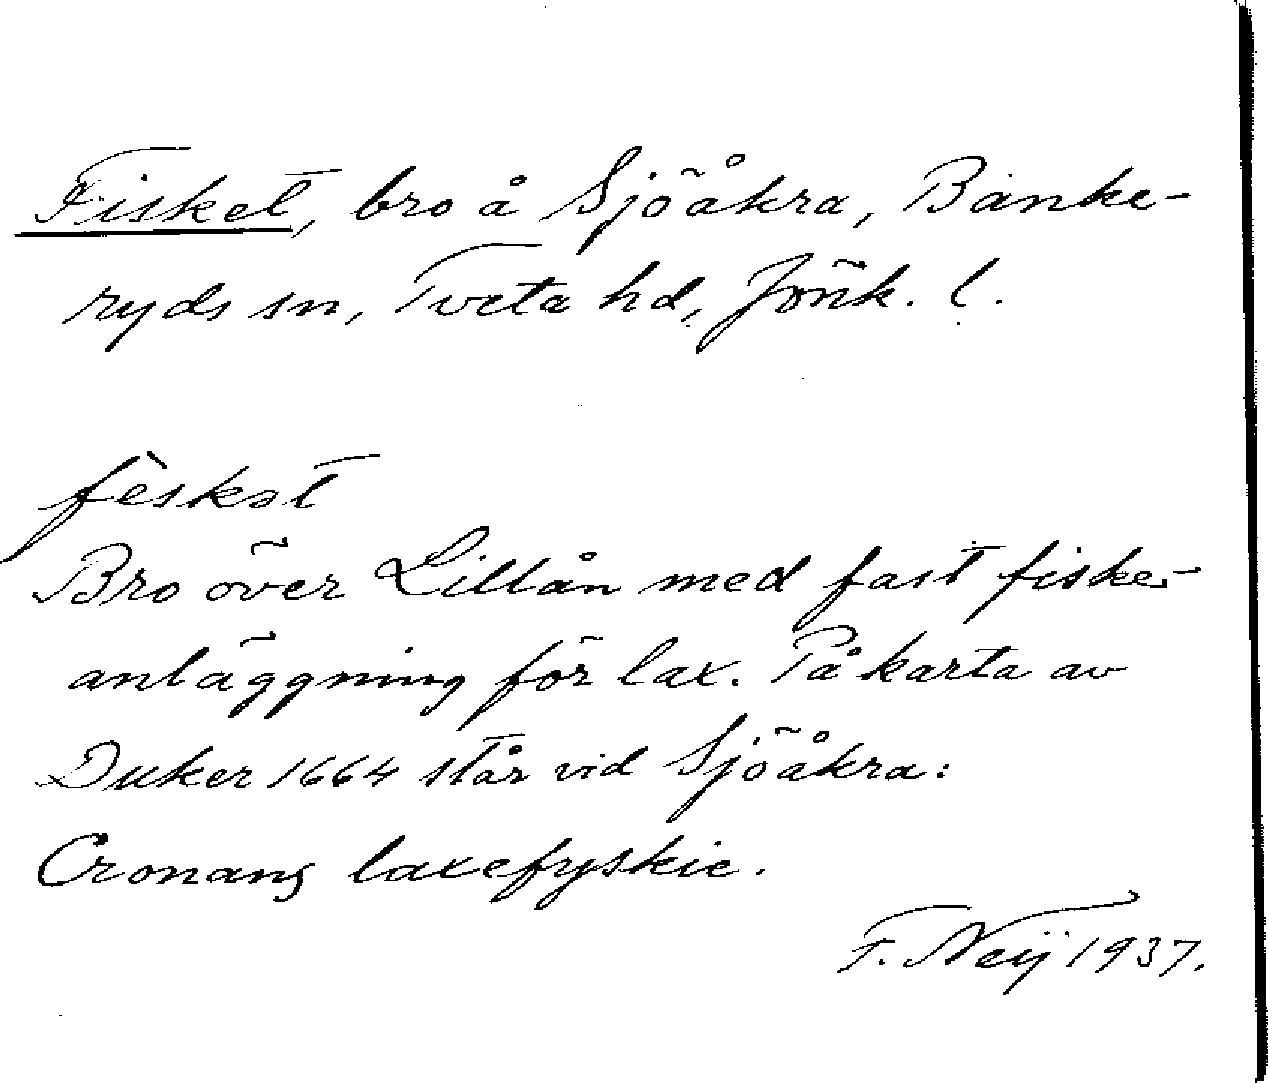 Fisket, bro å Sjöåkra, Banke-
ryds sn, Tveta hd, Jönk. l.
fèskət
Bro över Lillån med fast fiske-
anläggning för lax. På karta av
Duker 1664 står vid Sjöåkra:
Cronans laxefyskie.
F. Neij 1937.